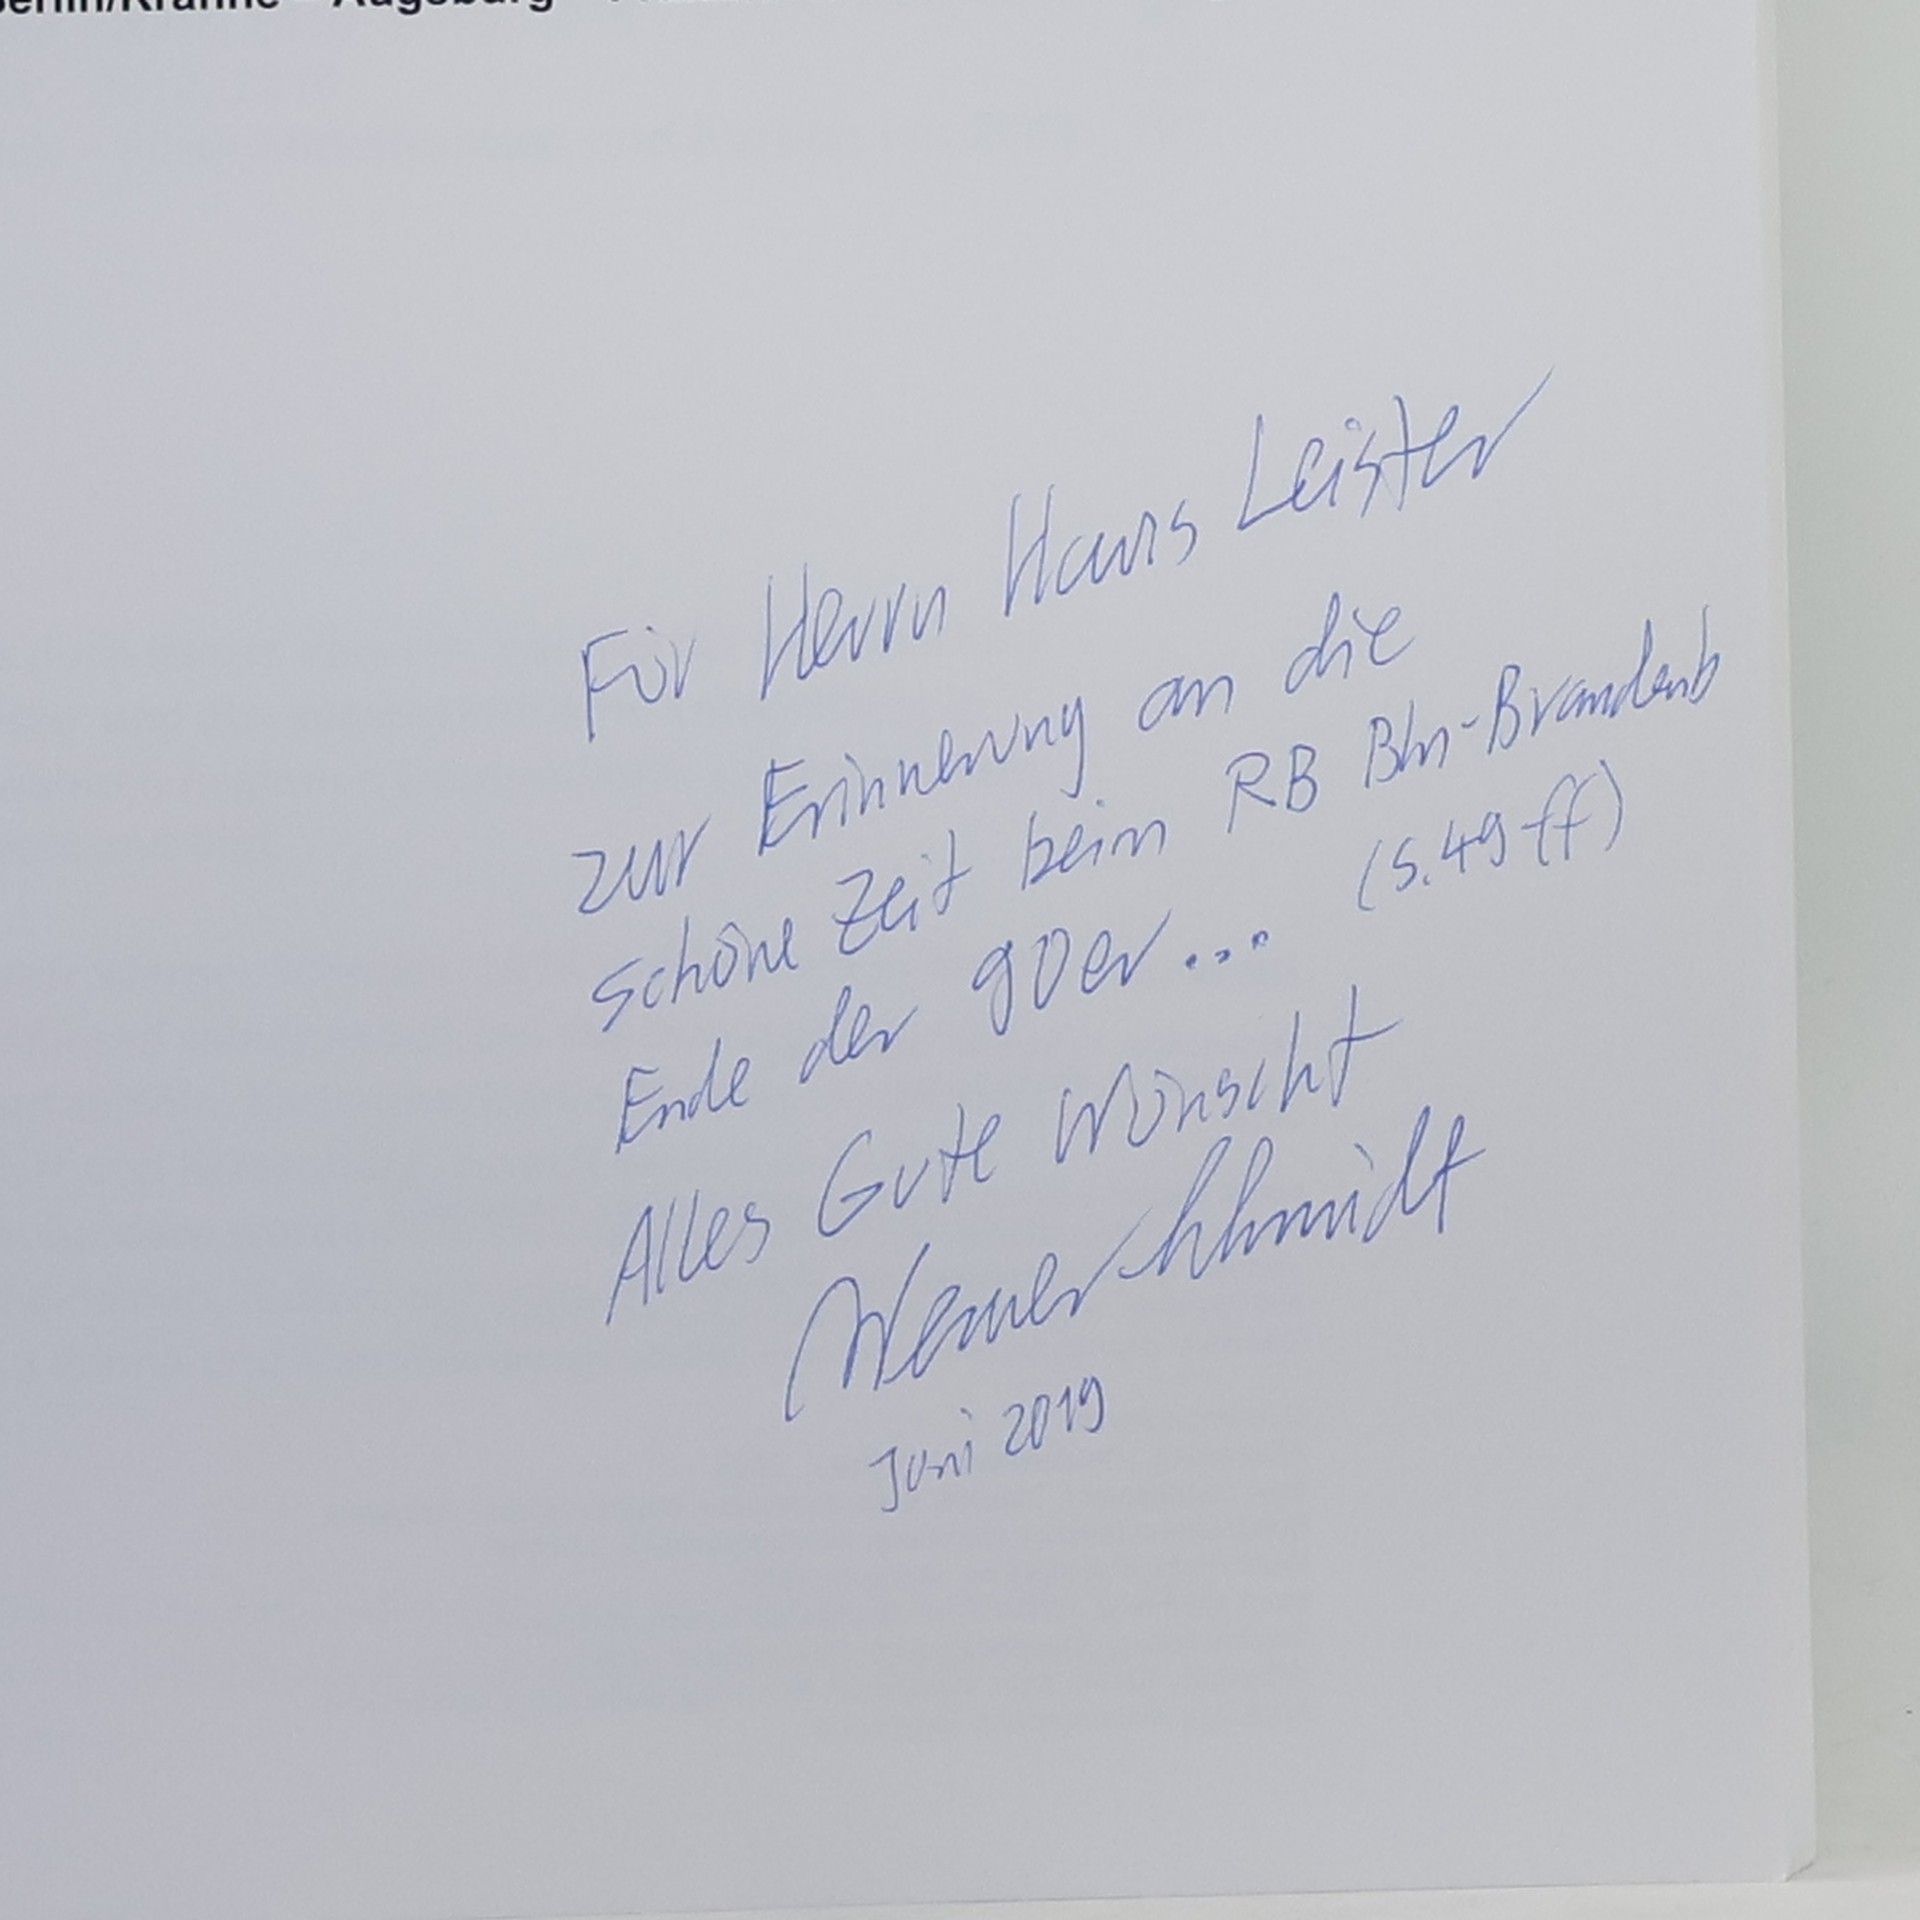 Berlin/Krahne – Augsburg
Für Herrn Hans Leister
zur Erinnerung an die
schöne Zeit beim RB Bln-Brandenb
(S. 49 ff)
Ende der 90er...
Alles Gute wünscht
Werner Schmidt
Juni 2019